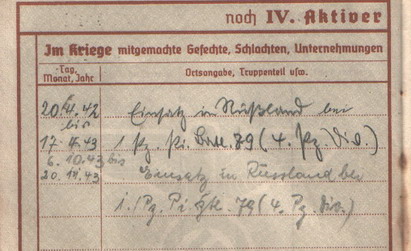 noch IV. Aktiver
Im Kriege mitgemachte Gefechte, Schlachten, Unternehmungen
Tag, Monat, Jahr
Ortsangabe, Truppenteil usw.
Einsatz in Rußland bei
bis
17. 43 1. Pz. Pi. 79 (4. Pz. Div.)
6. 10. 43 bis
20. 43 Einsatz in Russland bei
1. Pz. Pi 79 (4. Pz. Div.)